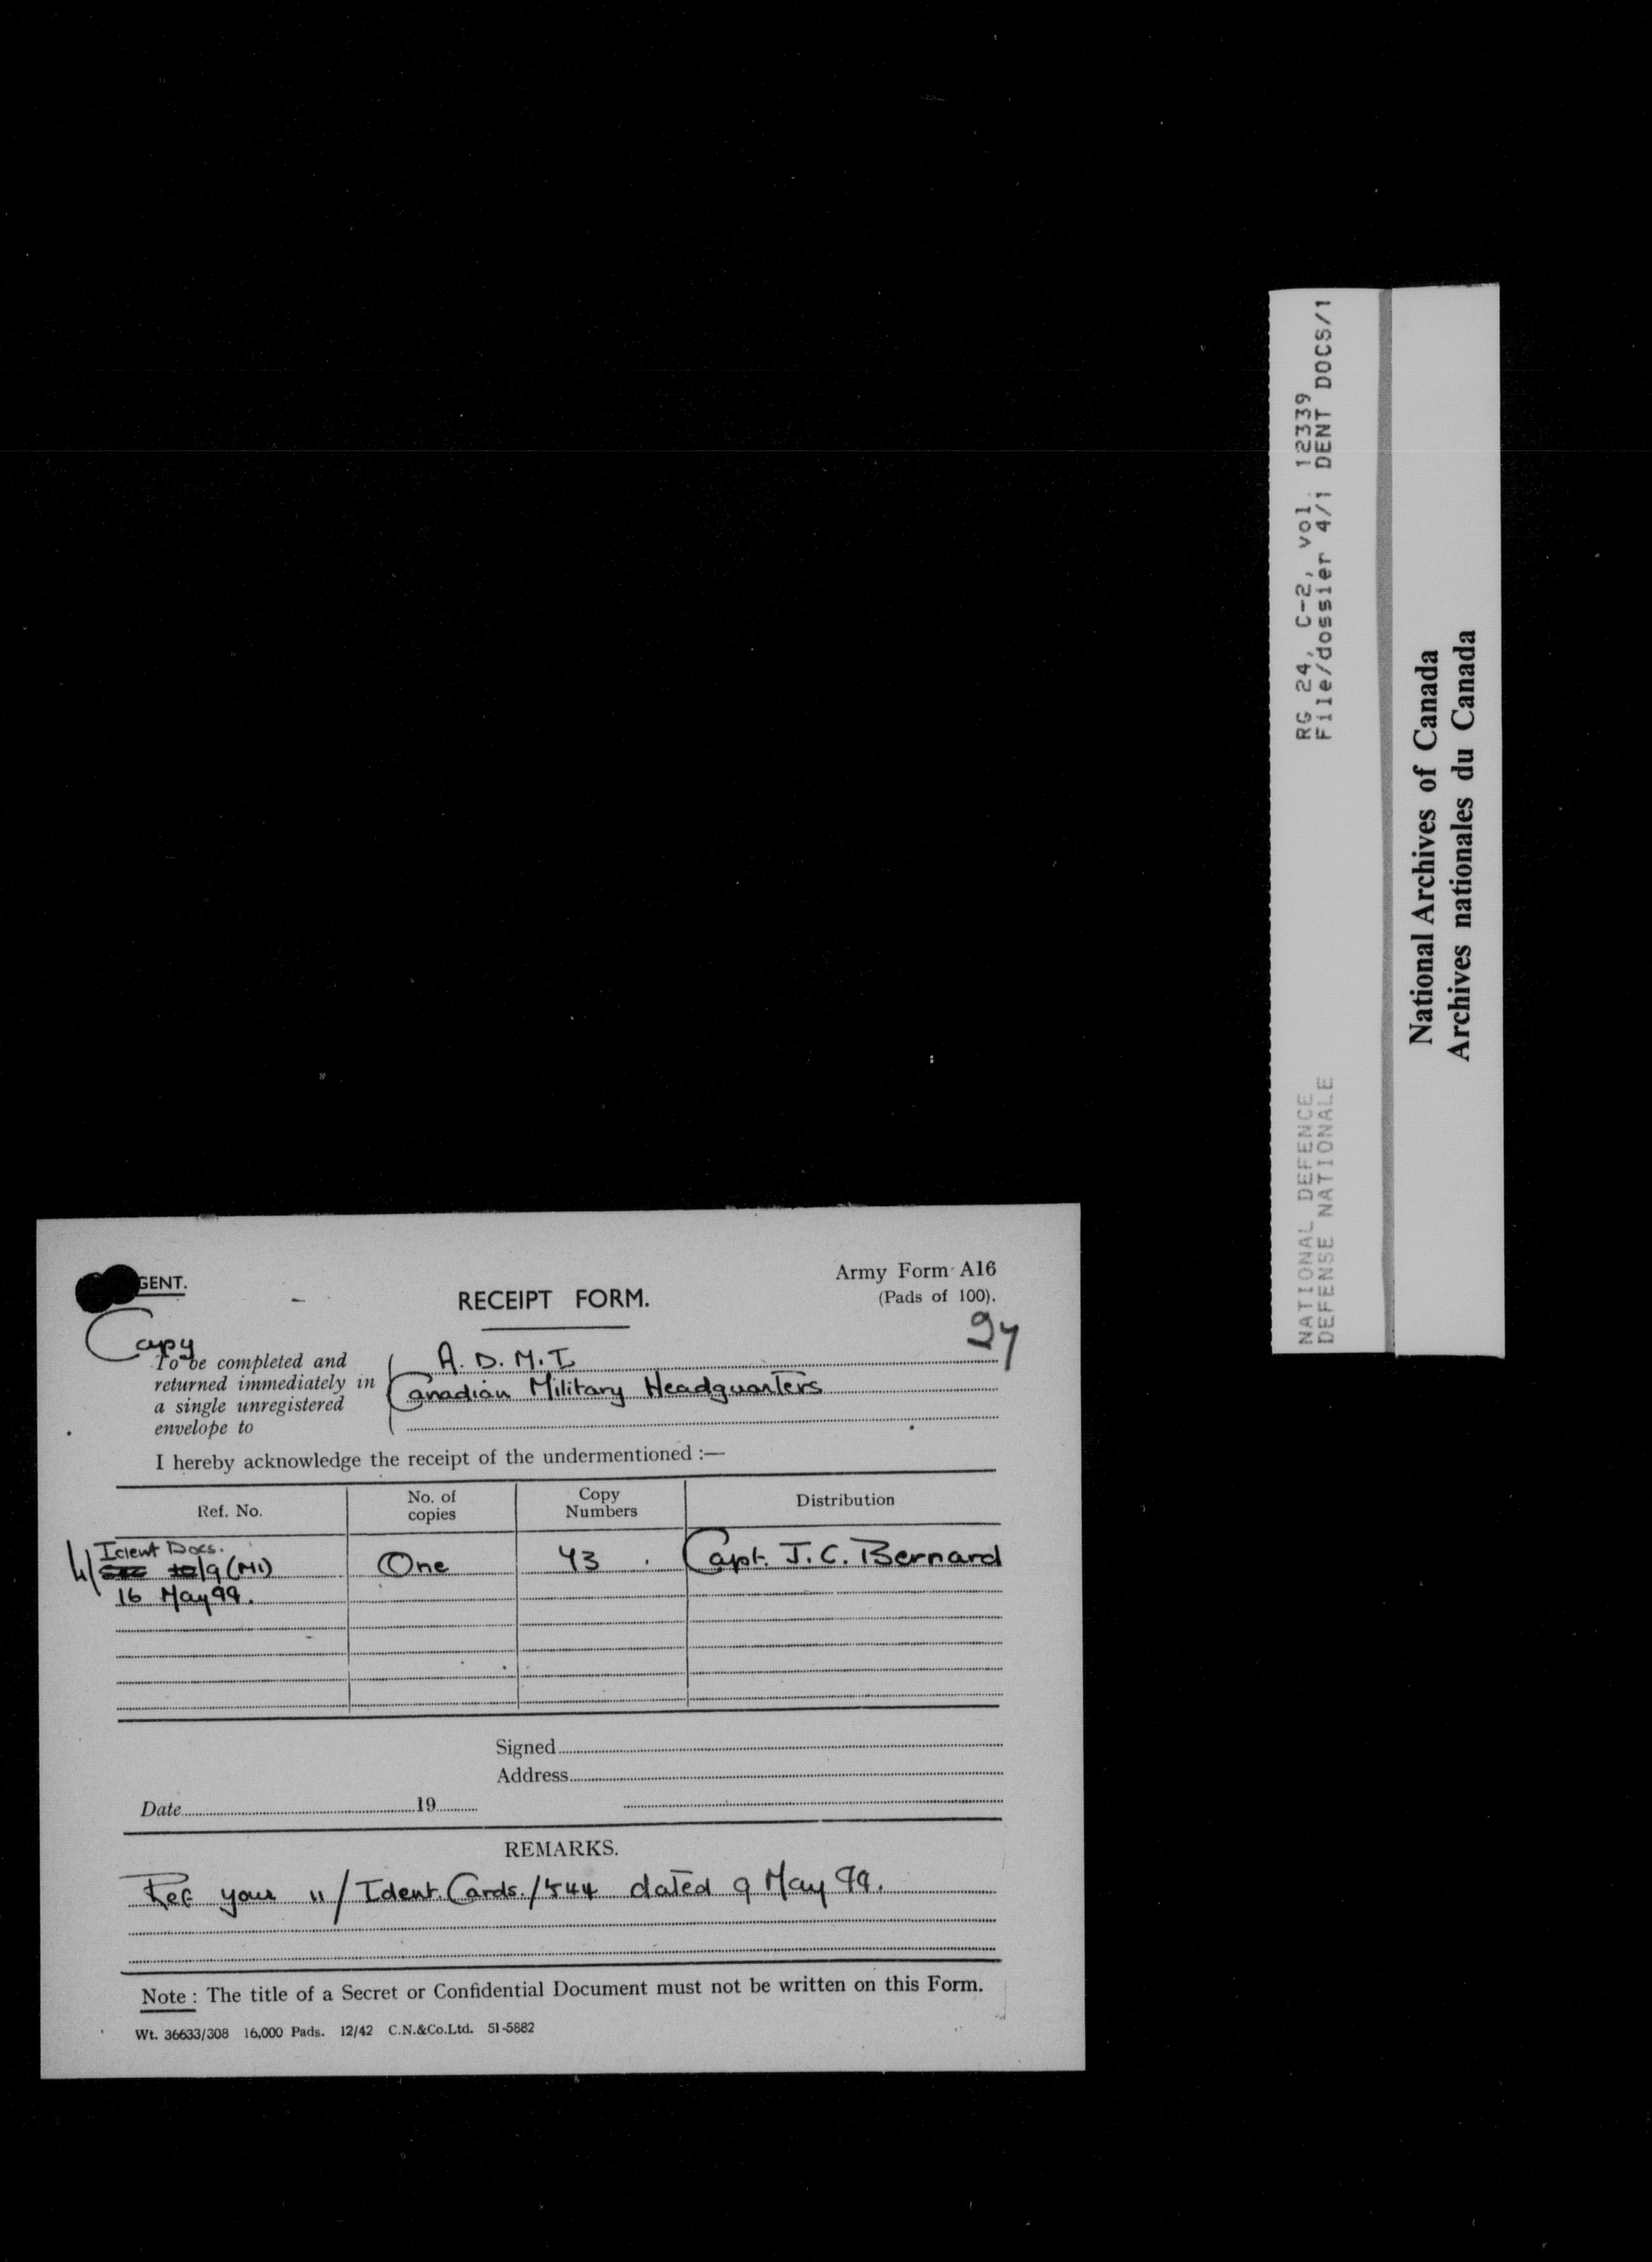 GENT.
Army Form A16
RECEIPT FORM.
(Pads of 100).
Copy
To be completed and
returned immediately in
a single unregistered
envelope to
A. D. M. I
Canadian Military Headquarters
I hereby acknowledge the receipt of the undermentioned :—
Ref. No.
No. of
copies
Copy
Numbers
Distribution
4/ Ident Docs.
/9 (MI)
One
43
Capt. J. C. Bernard
16 May 44.
Signed
Address
Date 19
REMARKS.
Ref your 11/Ident. Cards./544 dated 9 May 44.
Note : The title of a Secret or Confidential Document must not be written on this Form.
Wt. 36633/308 16,000 Pads. 12/42 C.N.&Co.Ltd. 51-5882
NATIONAL DEFENCE
DEFENSE NATIONALE
RG 24, C-2, vol. 12339
File/dossier 4/1 DENT DOCS/1
National Archives of Canada
Archives nationales du Canada